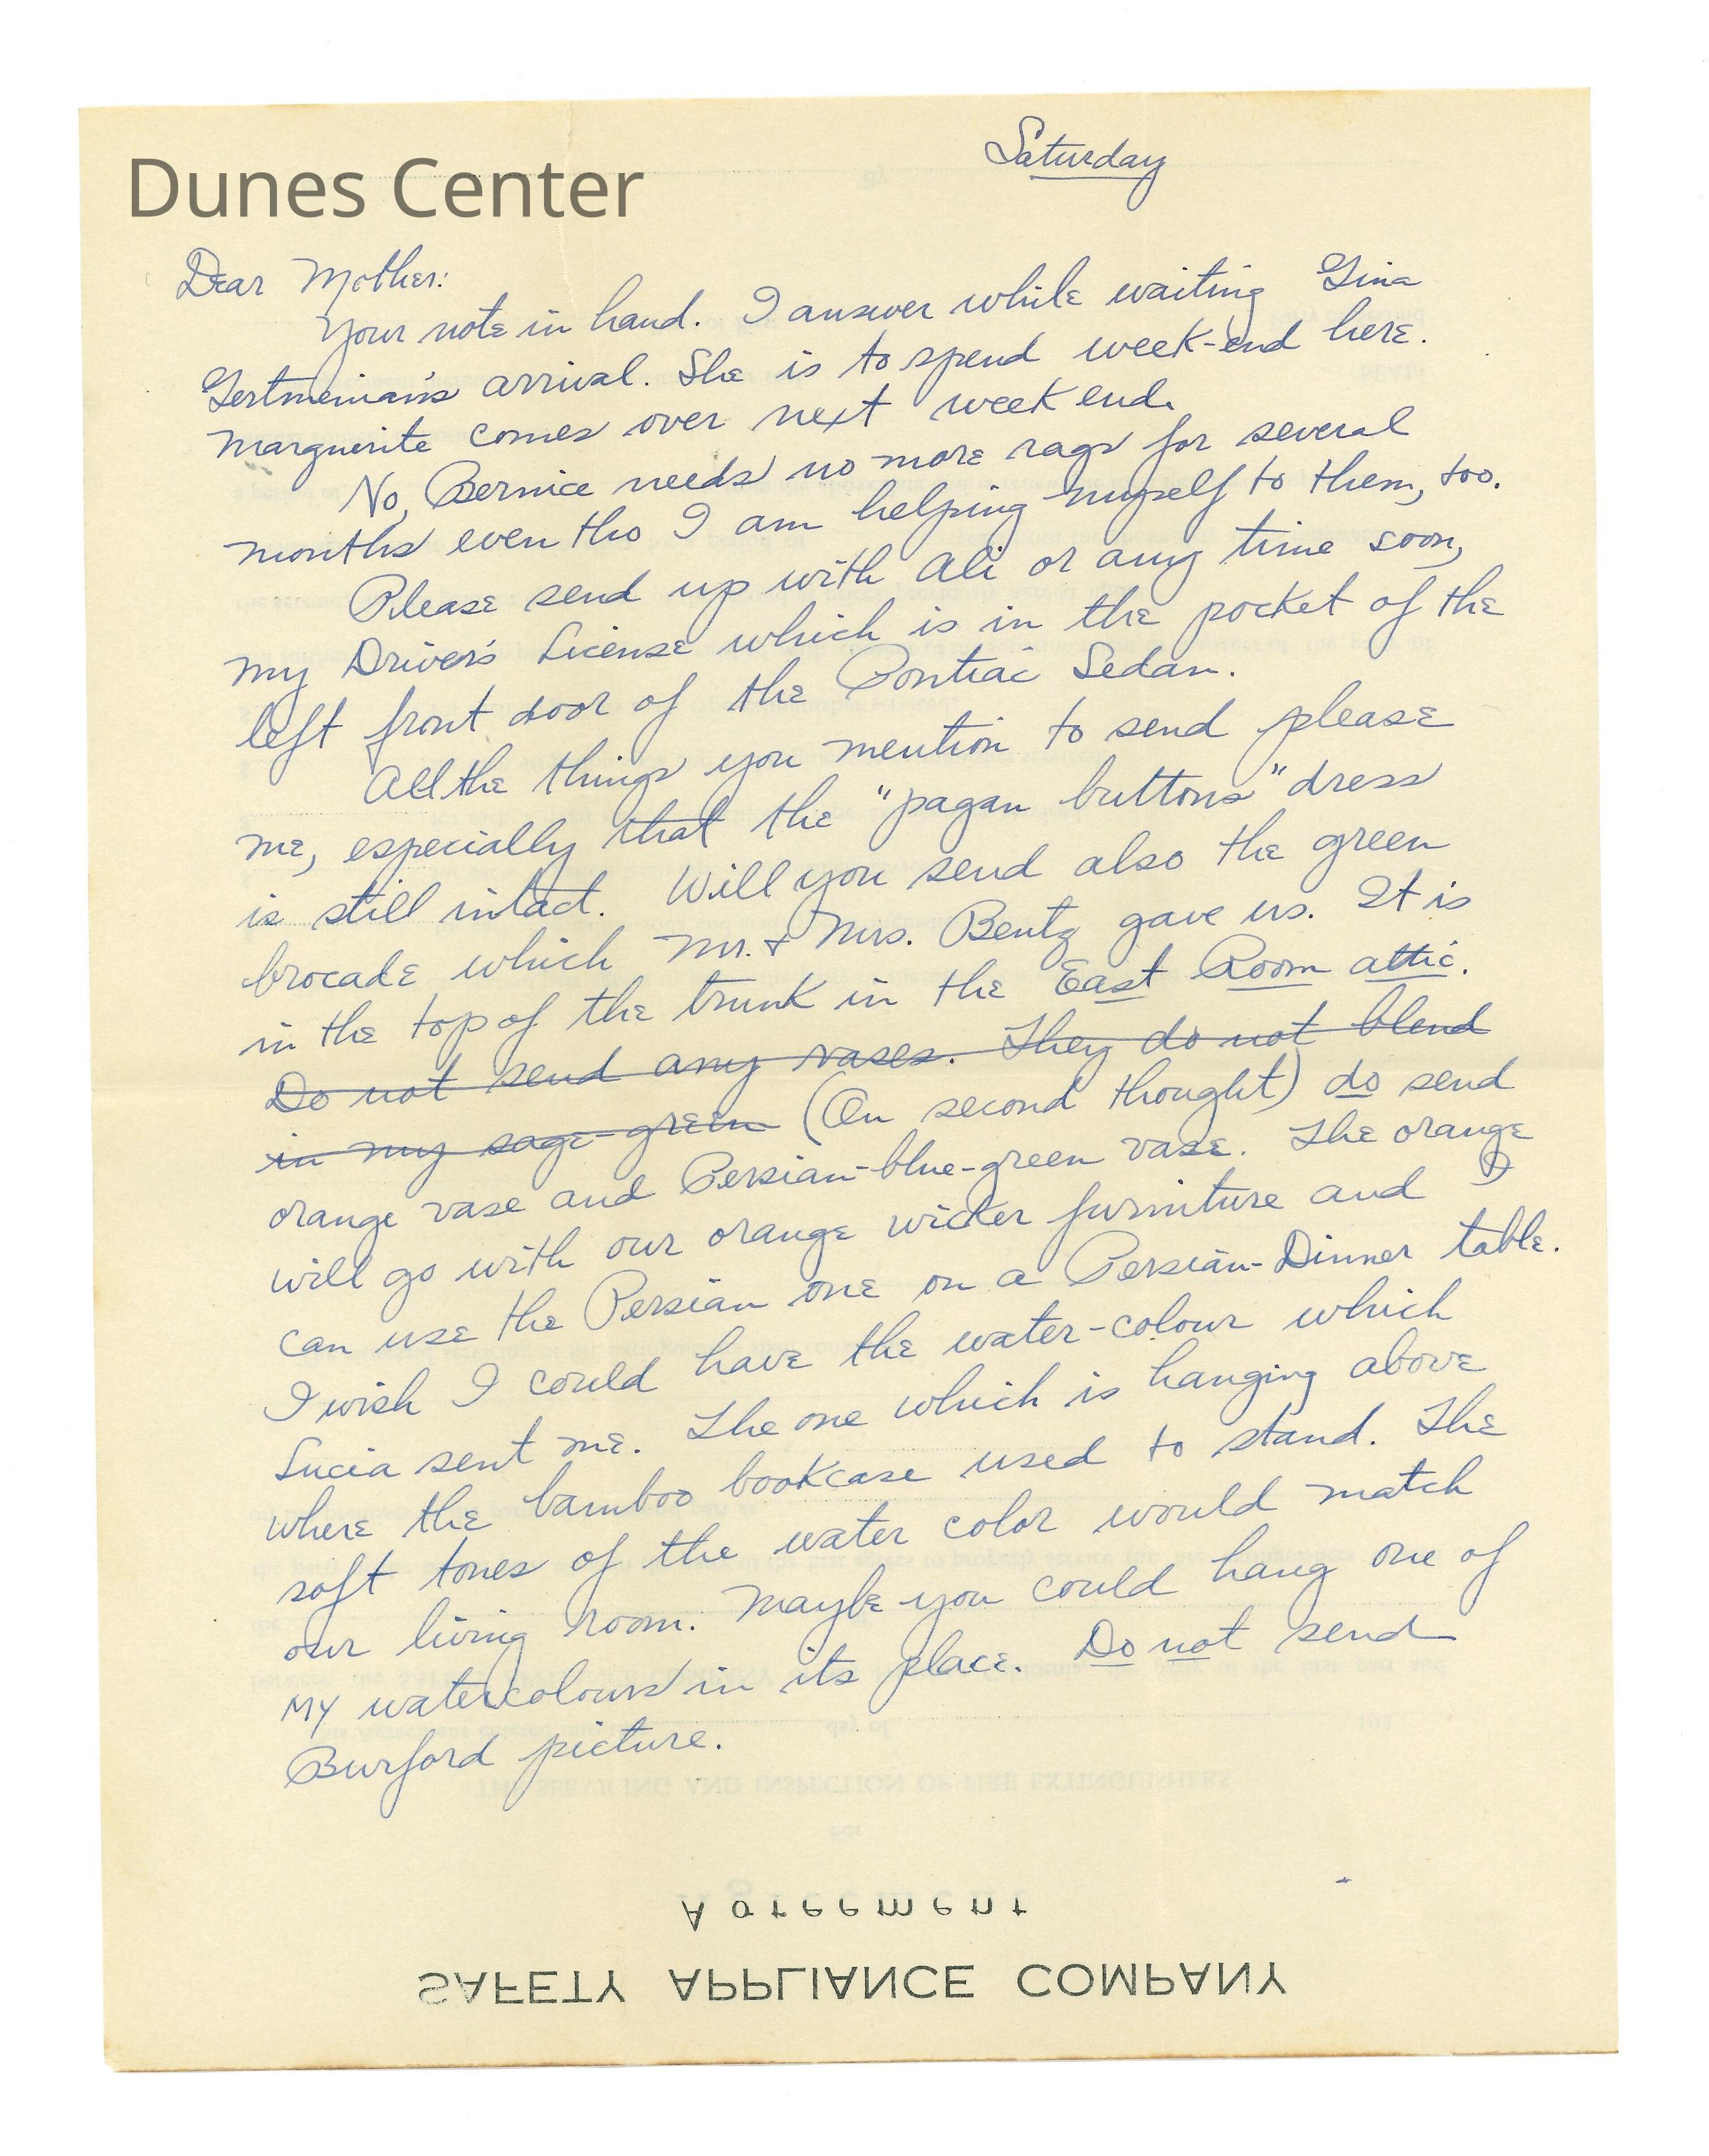 Saturday
Dunes Center
Dear Mother:
Your note in hand. I answer while waiting Gina
Gertmenian's arrival. She is to spend week-end here.
Marguerite comes over next week end.
No, Bernice needs no more rags for several
months even tho I am helping myself to them, too.
Please send up with Ali or any time soon,
my Driver's License which is in the pocket of the
left front door of the Pontiac Sedan.
All the things you mention to send please
me, especially that the "pagan buttons" dress
is still intact. Will you send also the green
brocade which Mr. & Mrs. Bentz gave us. It is
in the top of the trunk in the East Room attic.
Do not send any vases. They do not blend
in my sage-green (On second thought) do send
orange vase and Persian-blue-green vase. The orange
will go with our orange wicker furniture and I
can use the Persian one on a Persian-Dinner table.
I wish I could have the water-colour which
Lucia sent me. The one which is hanging above
where the bamboo bookcase used to stand. The
soft tones of the water color would match
our living room. Maybe you could hang one of
MY watercolours in its place. Do not send
Burford picture.
Agreement
SAFETY APPLIANCE COMPANY